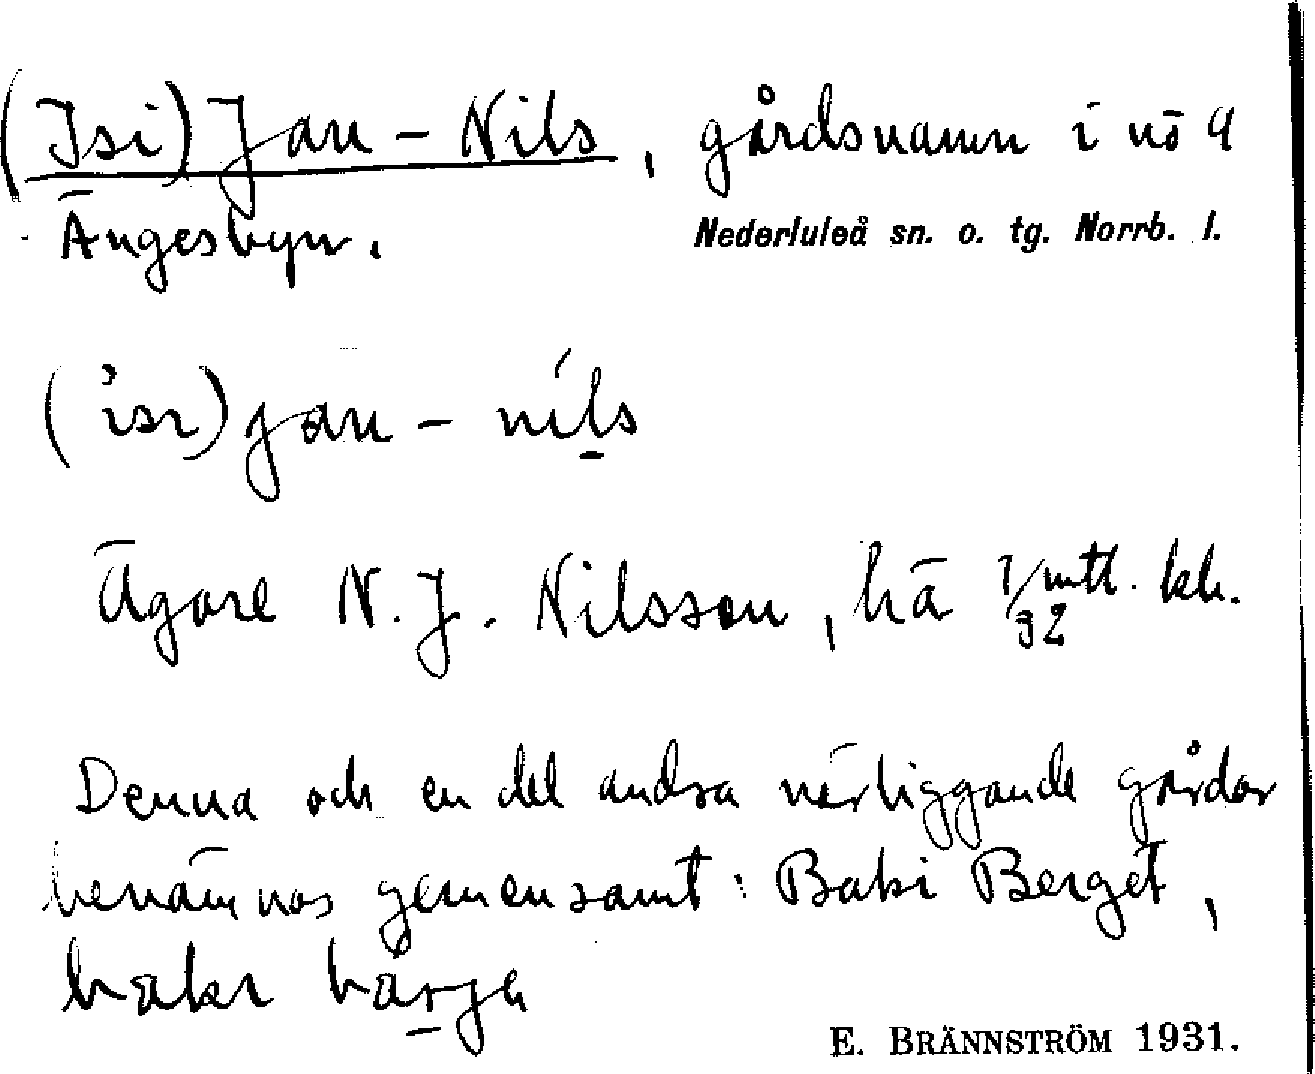 (Isi) Jan - Nils, gårdsnamn i nö 9
Ängesbyn.
Nederluleå sn. o. tg. Norrb. l.
(isı) jan - níls
Ägare N. J. Nilsson, hä 1/32 mtl. kh.
Denna och en del andra närliggande gårdar
benämnas gemensamt: Baki Berget,
bakı
E. BRÄNNSTRÖM 1931.